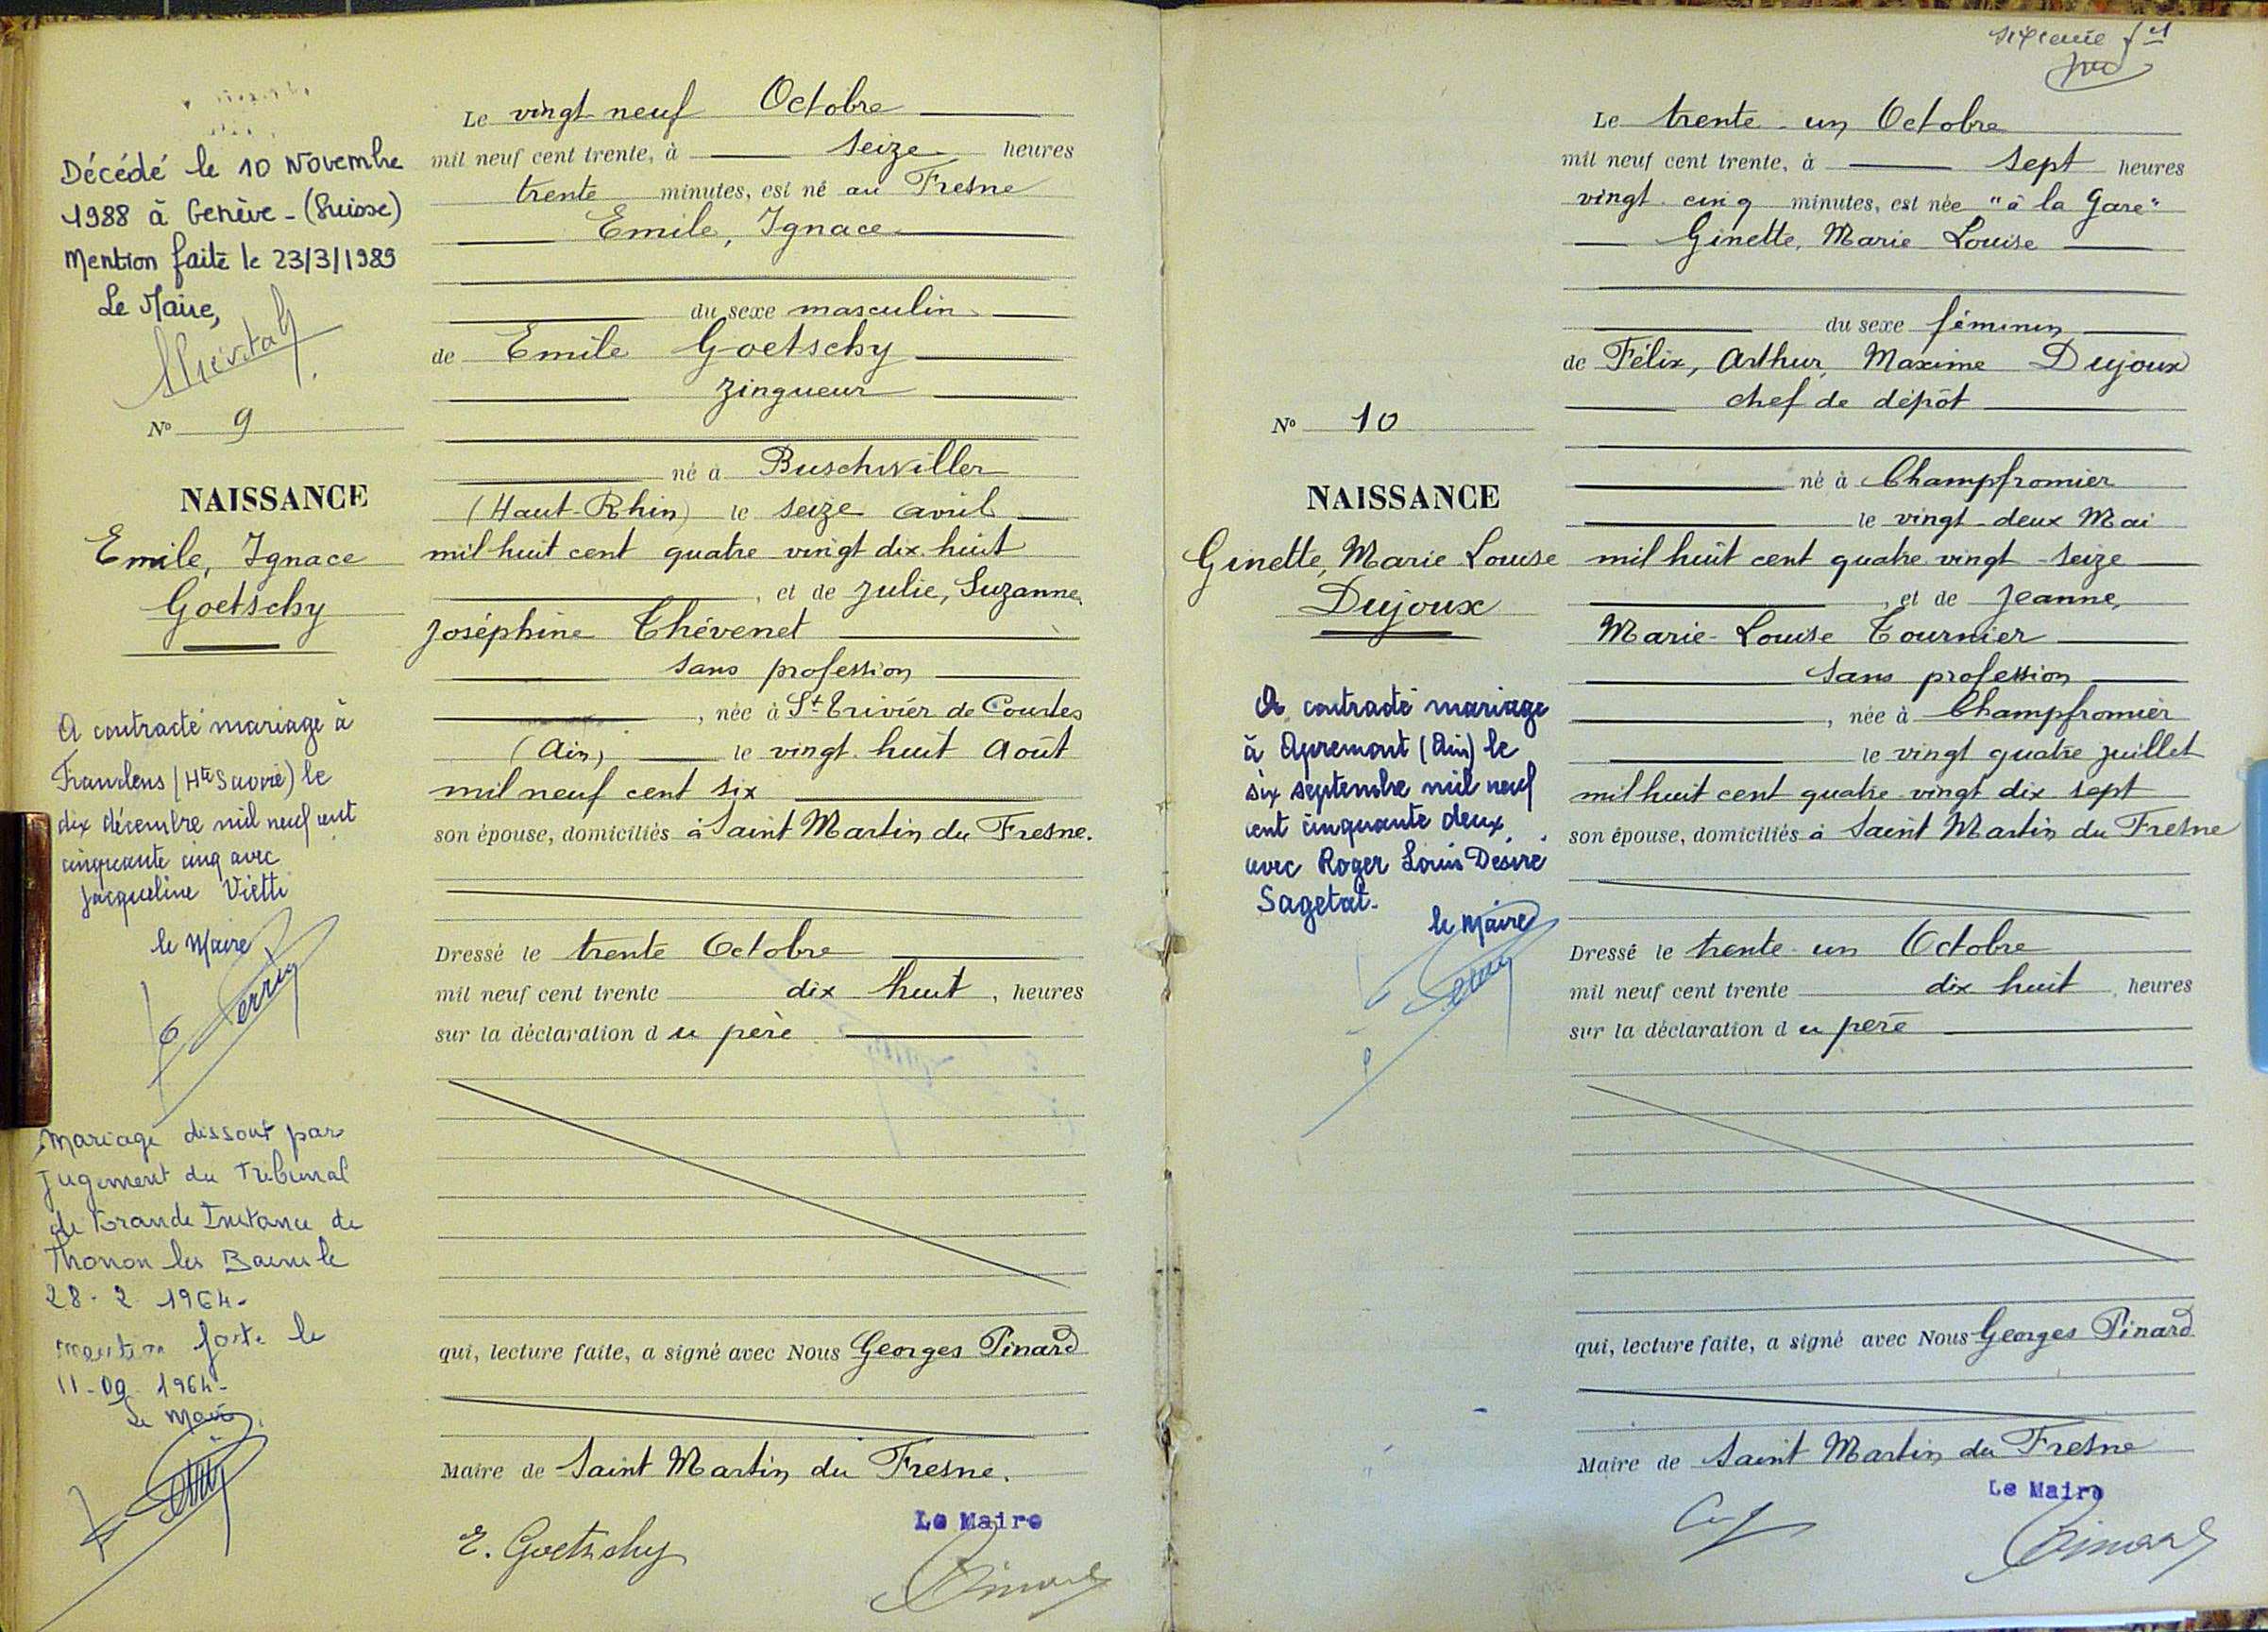 Décédé le 10 Novembre
1988 à Genève - (Suisse)
Mention faite le 23/3/1989
Le Maire,
N° 9
NAISSANCE
Emile, Ignace
Goetschy
A contracté mariage à
Franclens (Hte Savoie) le
dix décembre mil neuf cent
cinquante cinq avec
Jacqueline Vietti
le Maire
Mariage dissout par
Jugement du Tribunal
de Grande Instance de
Thonon les Bains le
28-2 1964-
mention faite le
11-09-1964-
Le Maire
Le vingt-neuf Octobre
mil neuf cent trente, à seize heures
trente minutes, est né au Fresne
Emile, Ignace
du sexe masculin
de Emile Goetschy
zingueur
né à Buschwiller
(Haut-Rhin) le seize avril
mil huit cent quatre vingt dix huit
, et de Julie, Suzanne,
Joséphine Thévenet
sans profession
, née à St Trivier de Courtes
(Ain) le vingt-huit Août
mil neuf cent six
son épouse, domiciliés à Saint Martin du Fresne.
Dressé le trente Octobre
mil neuf cent trente dix huit, heures
sur la déclaration du père
qui, lecture faite, a signé avec Nous Georges Pinard
Maire de Saint Martin du Fresne.
Le Maire
E. Goetschy
Pinard
N° 10
NAISSANCE
Ginette, Marie Louise
Dujoux
A contracté mariage
à Apremont (Ain) le
six septembre mil neuf
cent cinquante deux
avec Roger Louis Désiré
Sagetat-
le Maire
Le trente-un Octobre
mil neuf cent trente, à sept heures
vingt-cinq minutes, est née "à la Gare"
Ginette, Marie Louise
du sexe féminin
de Félix, Arthur, Maxime Dujoux
chef de dépôt
né à Champfromier
le vingt-deux Mai
mil huit cent quatre vingt-seize
, et de Jeanne,
Marie-Louise Tournier
sans profession
, née à Champfromier
le vingt quatre juillet
mil huit cent quatre-vingt dix sept
son épouse, domiciliés à Saint Martin du Fresne
Dressé le trente-un Octobre
mil neuf cent trente dix huit, heures
sur la déclaration du père
qui, lecture faite, a signé avec Nous Georges Pinard
Maire de Saint Martin du Fresne
Le Maire
Pinard